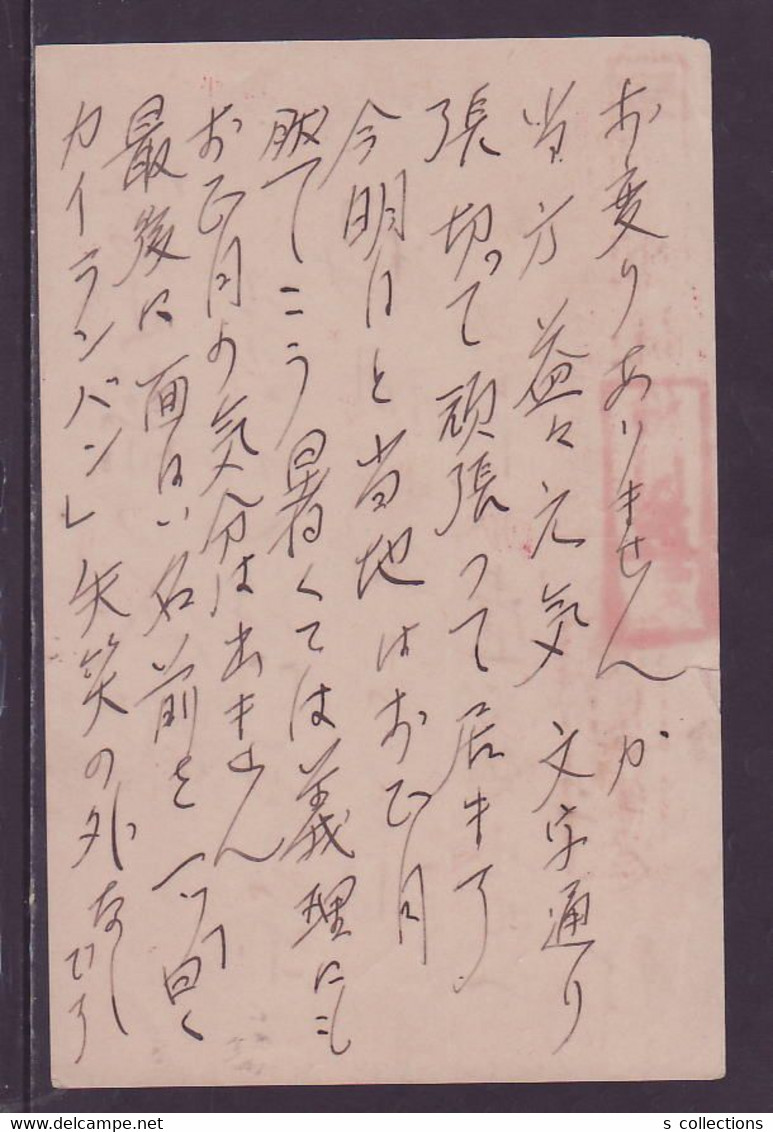 お変りありませんか
当方益々元気文字通り
張切って頑張って居ます
今明日と当地はお正月
脱てこう暑くては義理にも
お正月の気分は出ません
最後に面白い名前を一ツ曰く
カイランバン」失笑の外なしです
s collections